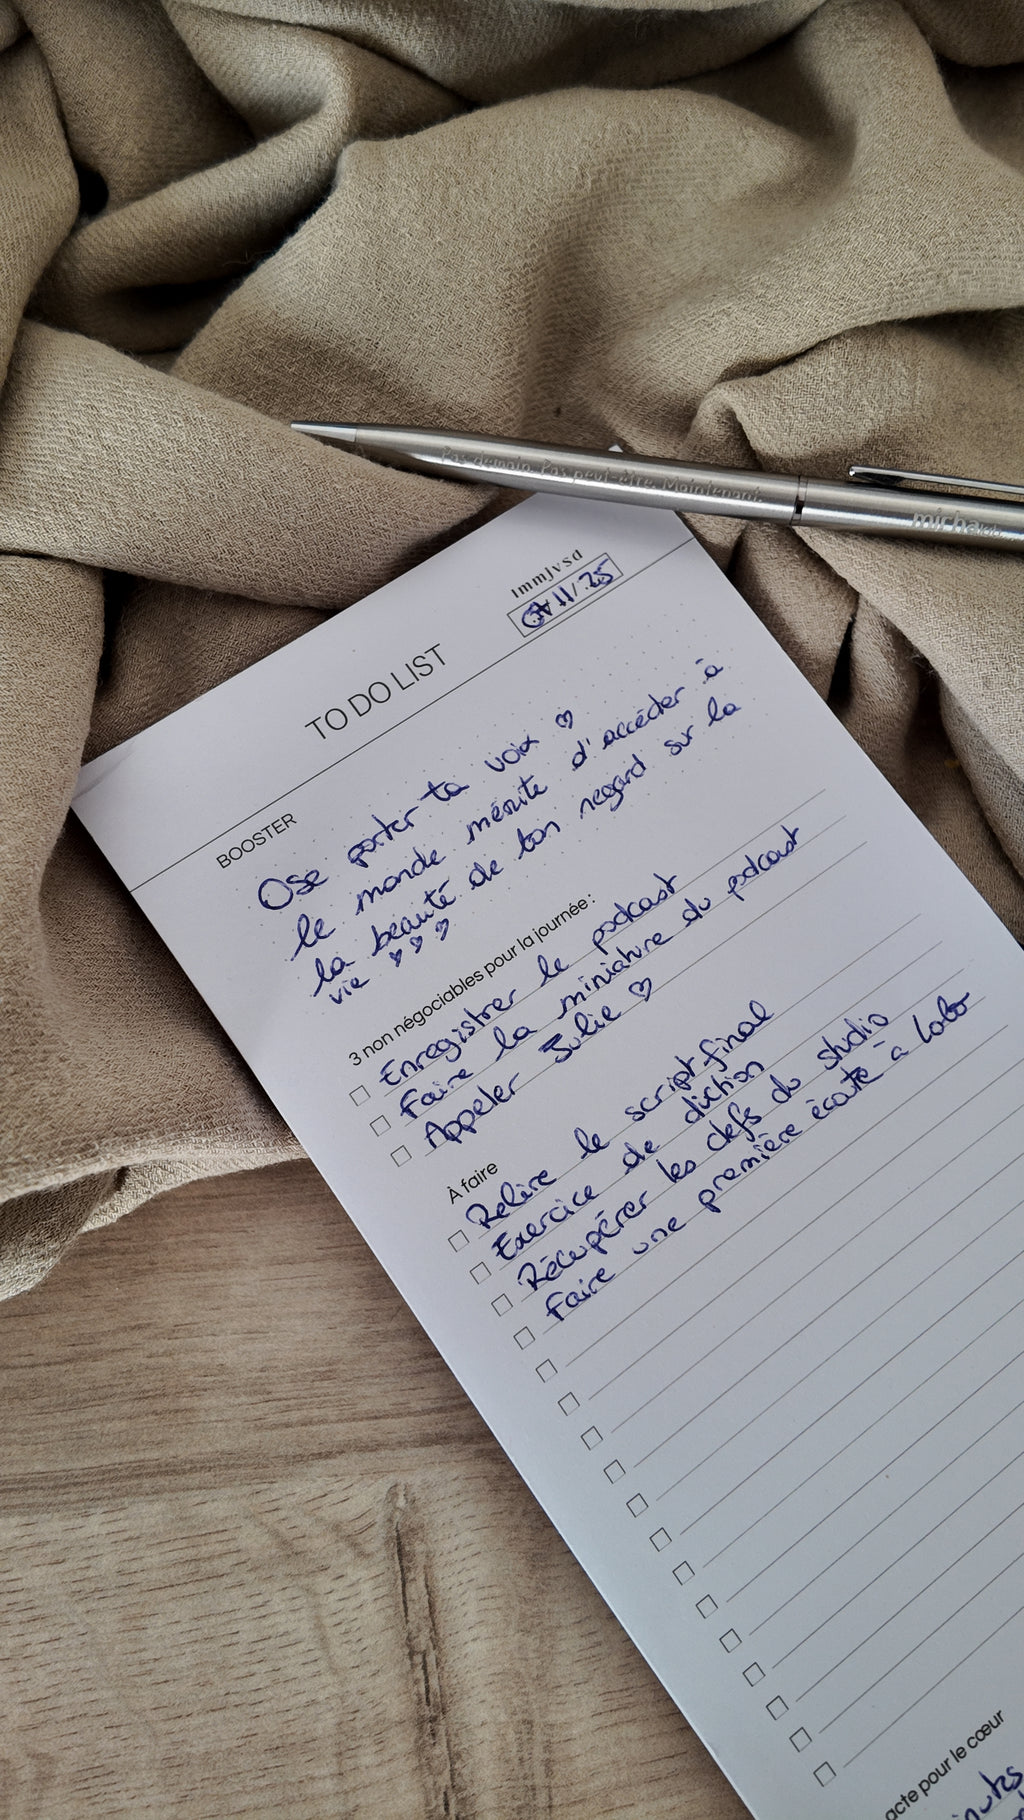 Pas demain. Pas peut-être. Maintenant.
micha
lmmjvsd
/11/25
TO DO LIST
BOOSTER
Ose porter ta voix ♡
le monde mérite d'accéder à
la beauté de ton regard sur la
vie ♡ ♡ ♡
3 non négociables pour la journée :
Enregistrer le podcast
Faire la miniature du podcast
Appeler Julie ♡
À faire
Relire le script final
Exercice de diction
Récupérer les clefs du studio
Faire une première écoute à Lolo
acte pour le cœur